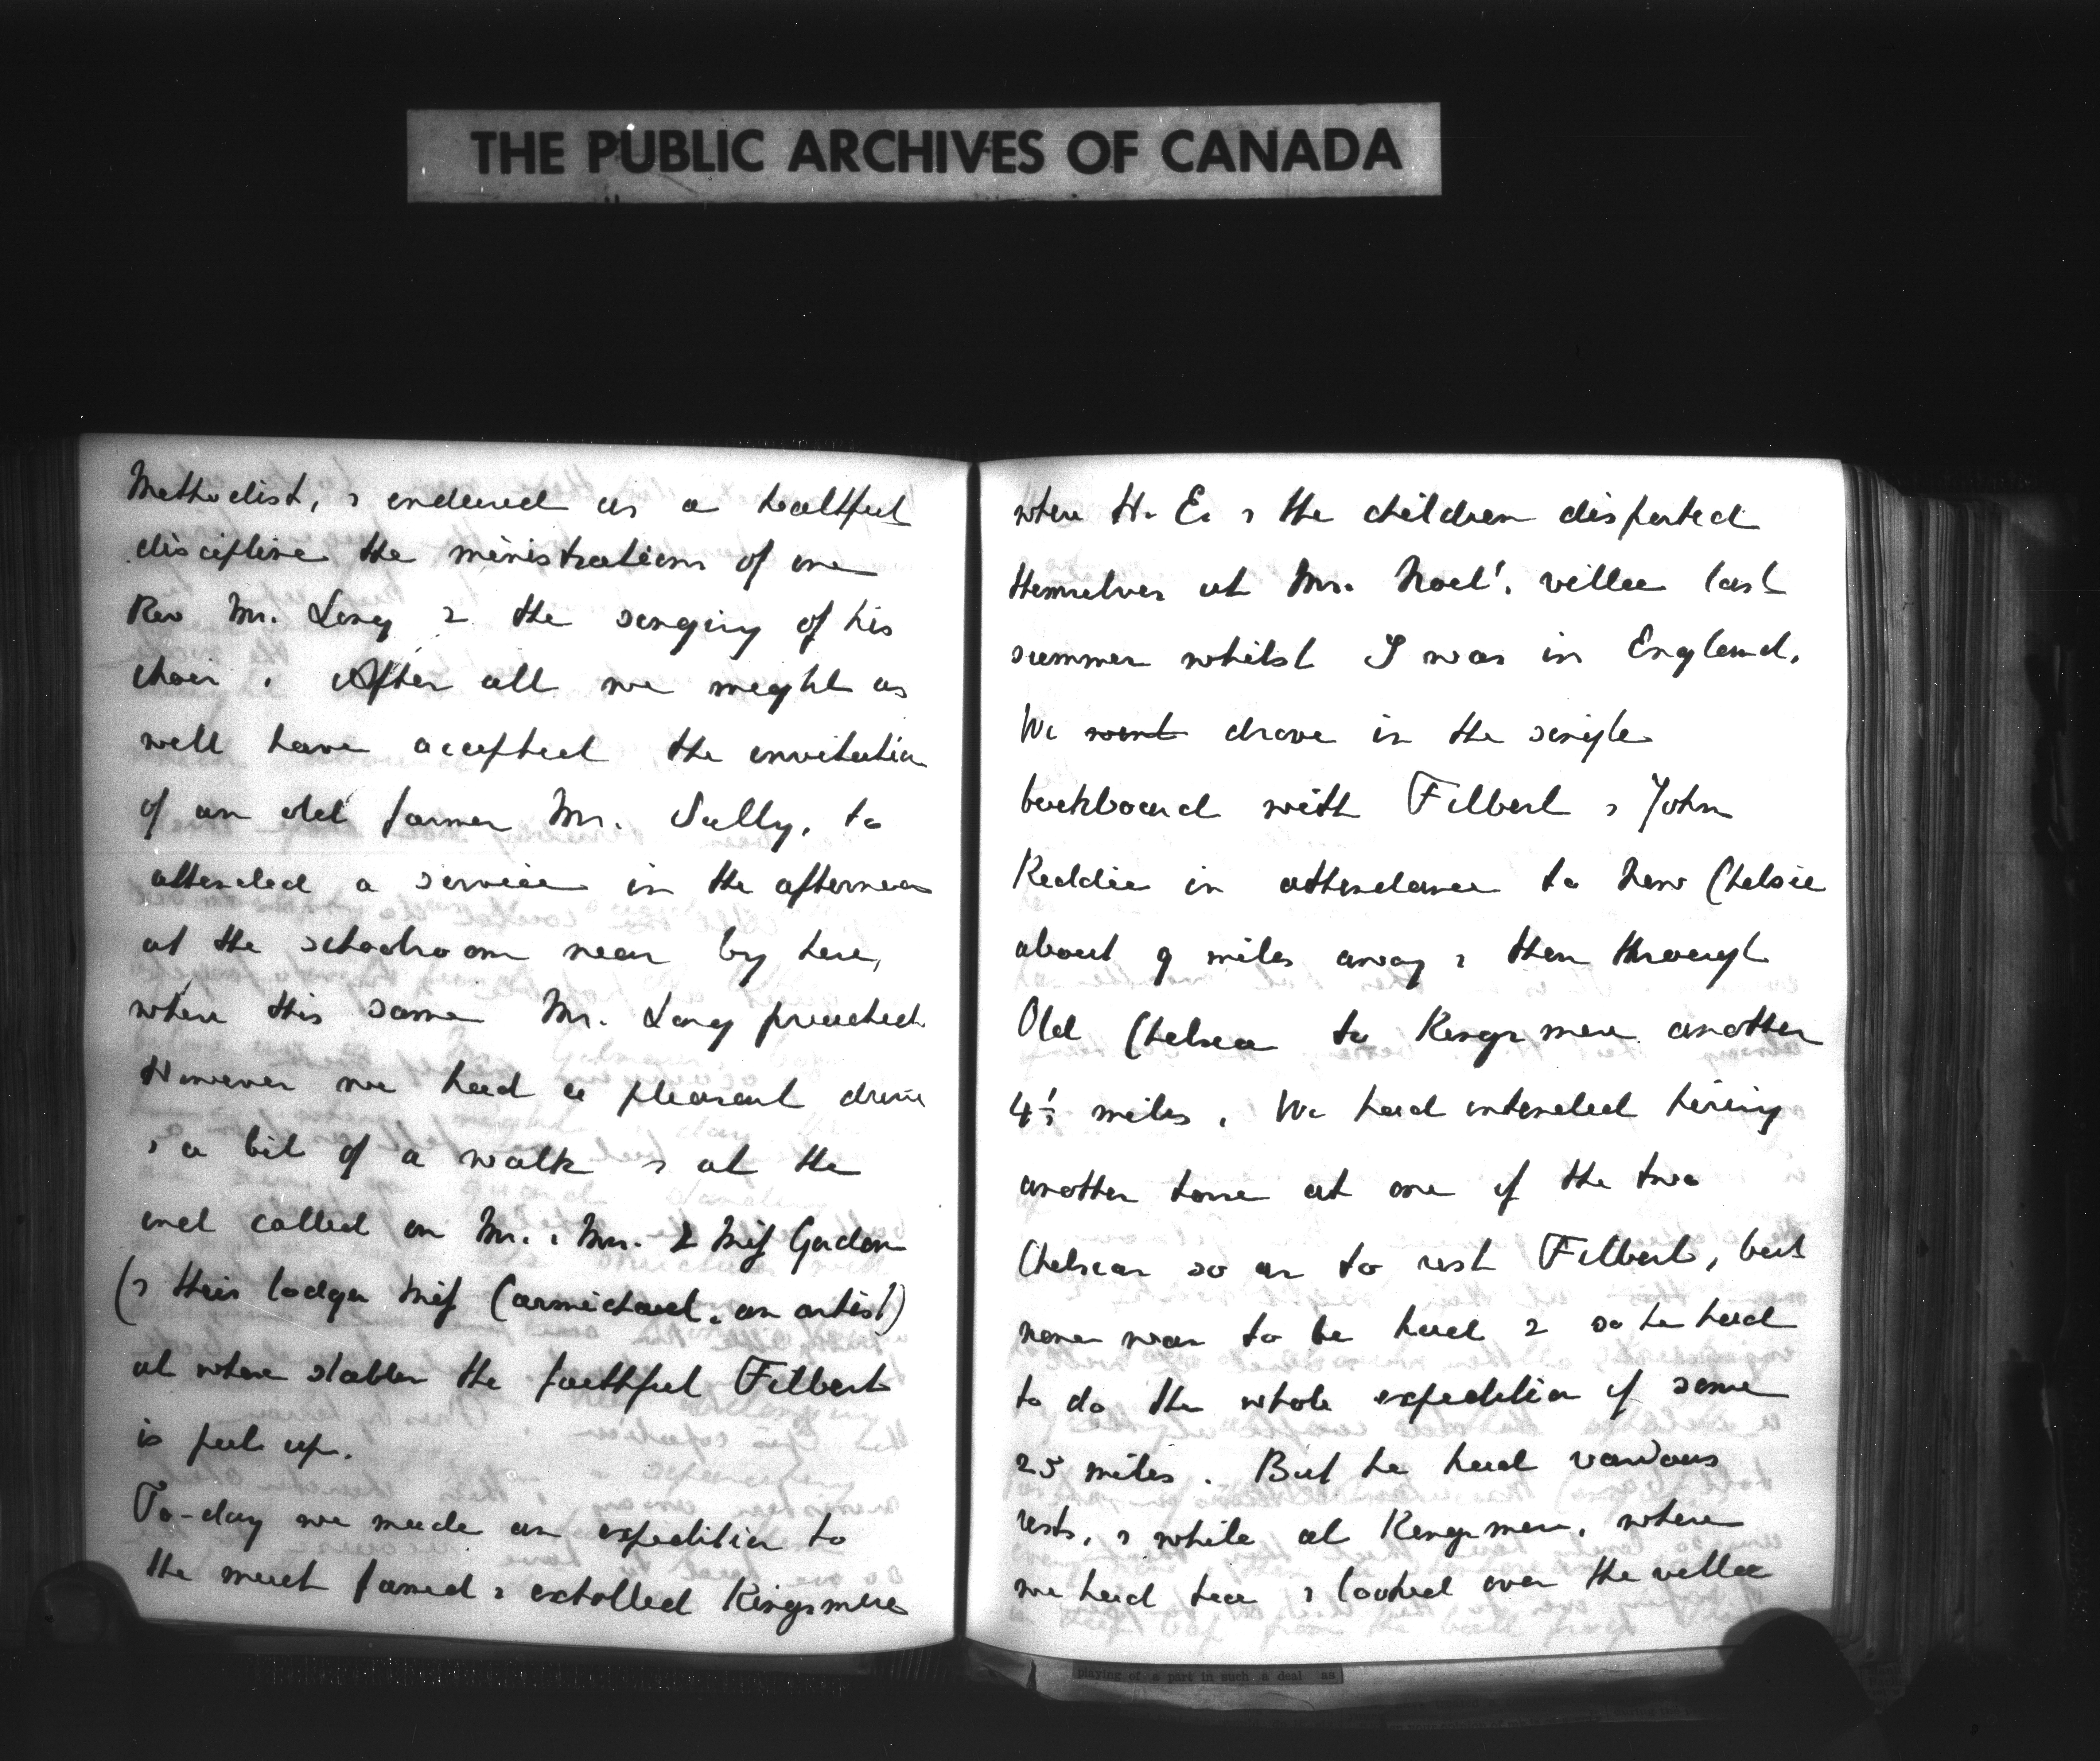 THE PUBLIC ARCHIVES OF CANADA
Methodist, & endured as a healthful
discipline the ministrations of one
Rev Mr. Long & the singing of his
choir. After all we might as
well have accepted the invitation
of an old farmer Mr. Sully, to
attended a service in the afternoon
at the schoolroom near by here,
where this same Mr. Long preached
However we had a pleasant drive
& a bit of a walk & at the
end called on Mr. & Mrs. & Miss Gordon
(& their lodger Miss Carmichael, an artist)
at whose stables the faithful Filbert
is put up.
To-day we made an expedition to
the much famed & extolled Kingsmere
where H. E. & the children disported
themselves at Mr. Noel's villa last
summer whilst I was in England.
We went drove in the single
buckboard with Filbert & John
Keddie in attendance to New Chelsea
about 9 miles away & then through
Old Chelsea to Kingsmere another
4½ miles. We had intended hiring
another horse at one of the two
Chelseas so as to rest Filbert, but
none was to be had & so he had
to do the whole expedition of some
25 miles. But he had various
rests, & while at Kingsmere, where
we had tea & looked over the villa
playing of a part in such a deal as